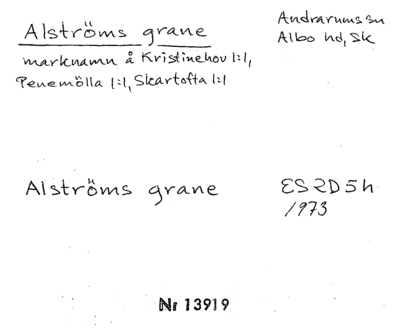 Alströms grane
Andrarums sn
Albo hd, Sk
marknamn å Kristinehov 1:1,
Penemölla 1:1, Skartofta 1:1
Alströms grane
ES 2D5h
1973
Nr 13919